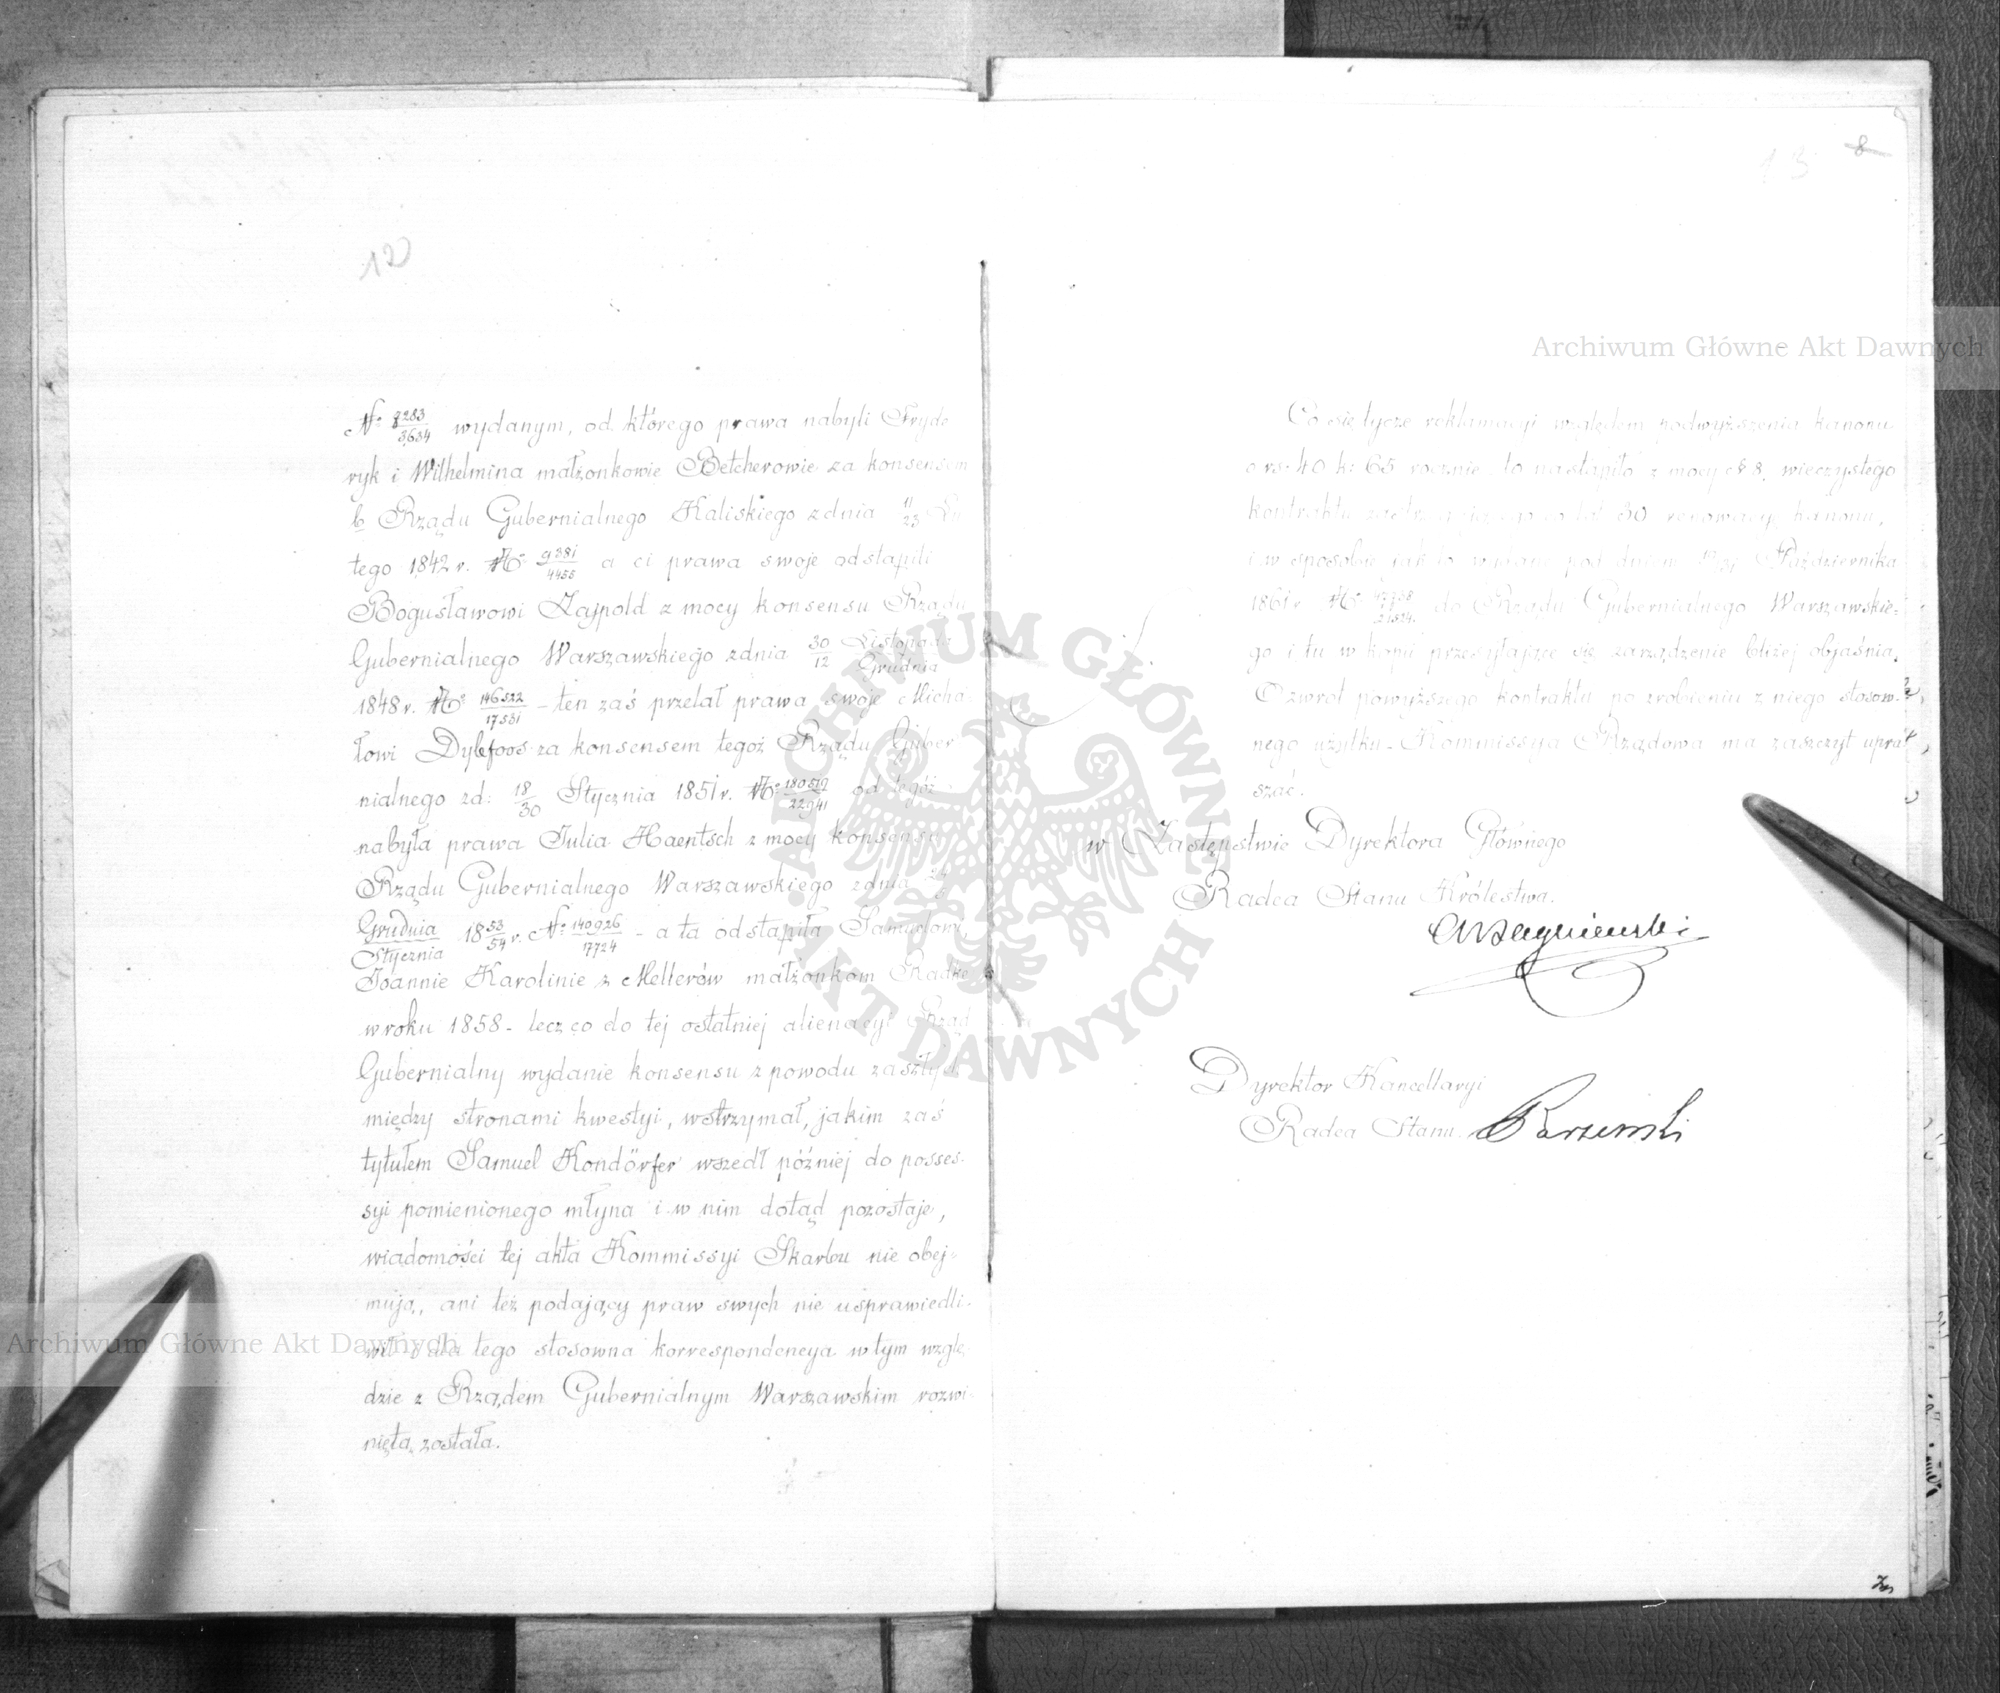 12
№ 8283/3634 wydanym, od którego prawa nabyli Fryde
ryk i Wilhelmina małżonkowie Betcherowie za konsensem
b. Rządu Gubernialnego Kaliskiego z dnia 11/23 Lu
tego 1842 r. № 9381/4455 a ci prawa swoje odstąpili
Bogusławowi Zajpold z mocy konsensu Rządu
Gubernialnego Warszawskiego z dnia 30/12 Listopada/Grudnia
1848 r. № 146522/17531 – ten zaś przelał prawa swoje Micha-
łowi Dylefoos za konsensem tegoż Rządu Guber
nialnego z d: 18/30 Stycznia 1851 r. № 180519/22941 od tegoż
nabyła prawa Julia Haentsch z mocy konsensu
Rządu Gubernialnego Warszawskiego z dnia 24/5
Grudnia/Stycznia 18 53/54 r. № 140926/17724 – a ta odstąpiła Samuelowi,
Joannie Karolinie z Mellerów małżonkom Radke
w roku 1858 – lecz co do tej ostatniej alienacyi Rząd
Gubernialny wydanie konsensu z powodu zaszłych
między stronami kwestyi, wstrzymał, jakim zaś
tytułem Samuel Kondörfer wszedł później do posses-
syi pomienionego młyna i w nim dotąd pozostaje,
wiadomości tej akta Kommissyi Skarbu nie obej-
mują, ani też podający praw swych nie usprawiedli-
wił i dla tego stosowna korrespondencya w tym wzglę
dzie z Rządem Gubernialnym Warszawskim rozwi-
niętą została.
13 8
Co się tycze reklamacji względem podwyższenia kanonu
o rs. 40 k: 65 rocznie – to nastąpiło z mocy § 8. wieczystego
kontraktu zastrzegającego co lat 30 renowacyę kanonu,
i w sposobie jak to wydane pod dniem Października
1861 r. № do Rządu Gubernialnego Warszawskie-
go i tu w kopii przesyłające się zarządzenie bliżej objaśnia.
O zwrot powyższego kontraktu po zrobieniu z niego stosow-
nego użytku – Kommissya Rządowa ma zaszczyt upra
szać.
w Zastępstwie Dyrektora Głównego
Radca Stanu Królestwa.
Dyrektor Kancellaryi
Radca Stanu.
Archiwum Główne Akt Dawnych
ARCHIWUM GŁÓWNE AKT DAWNYCH
Archiwum Główne Akt Dawnych